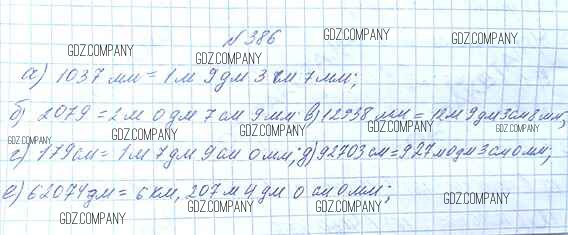 №386
GDZ.COMPANY GDZ.COMPANY GDZ.COMPANY GDZ.COMPANY
а) 1037 мм = 1 м 9 дм 3 см 7 мм;
GDZ.COMPANY GDZ.COMPANY GDZ.COMPANY GDZ.COMPANY
б) 2079 = 2 м 0 дм 7 см 9 мм в) 12938 мм = 12 м 9 дм 3 см 8 мм;
GDZ.COMPANY GDZ.COMPANY GDZ.COMPANY GDZ.COMPANY GDZ.COMPANY
г) 179 см = 1 м 7 дм 9 см 0 мм; д) 92703 см = 927 м 0 дм 3 см 0 мм;
е) 62074 дм = 6 км, 207 м 4 дм 0 см 0 мм;
GDZ.COMPANY GDZ.COMPANY GDZ.COMPANY GDZ.COMPANY